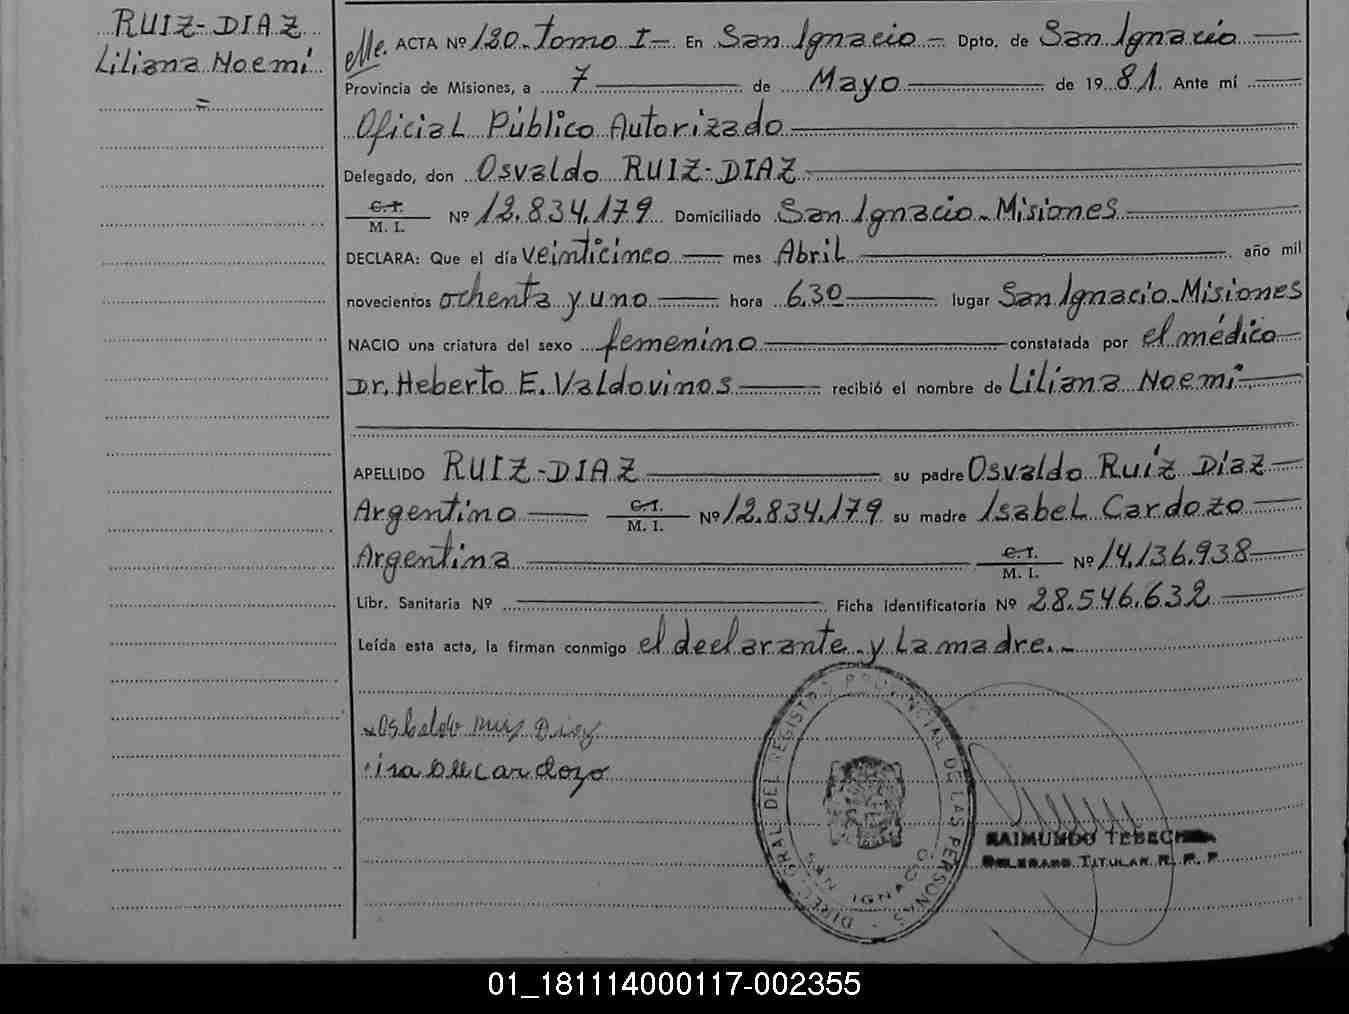 RUIZ-DIAZ
Liliana Noemi
=
ACTA Nº 120. Tomo I- En San Ignacio - Dpto. de San Ignacio
Provincia de Misiones, a 7 de Mayo de 1981. Ante mí
Oficial Público Autorizado
Delegado, don Osvaldo RUIZ-DIAZ
C.I.
M. I. Nº 12.834.179 Domiciliado San Ignacio-Misiones
DECLARA: Que el día veinticinco mes Abril año mil
novecientos ochenta y uno hora 6.30 lugar San Ignacio-Misiones
NACIO una criatura del sexo femenino constatada por el médico
Dr. Heberto E. Valdovinos recibió el nombre de Liliana Noemi
APELLIDO RUIZ-DIAZ su padre Osvaldo Ruíz Diaz
Argentino C.I.
M. I. Nº 12.834.179 su madre Isabel Cardozo
Argentina C.I.
M. I. Nº 14.136.938
Libr. Sanitaria Nº Ficha Identificatoria Nº 28.546.632
Leída esta acta, la firman conmigo el declarante y la madre.-
Osbaldo Ruiz Diaz
isabel cardozo
DIREC. GRAL. DEL REGISTRO PROVINCIAL DE LAS PERSONAS
SAN IGNACIO
RAIMUNDO
DELEGADO TITULAR R. P. P.
01_181114000117-002355